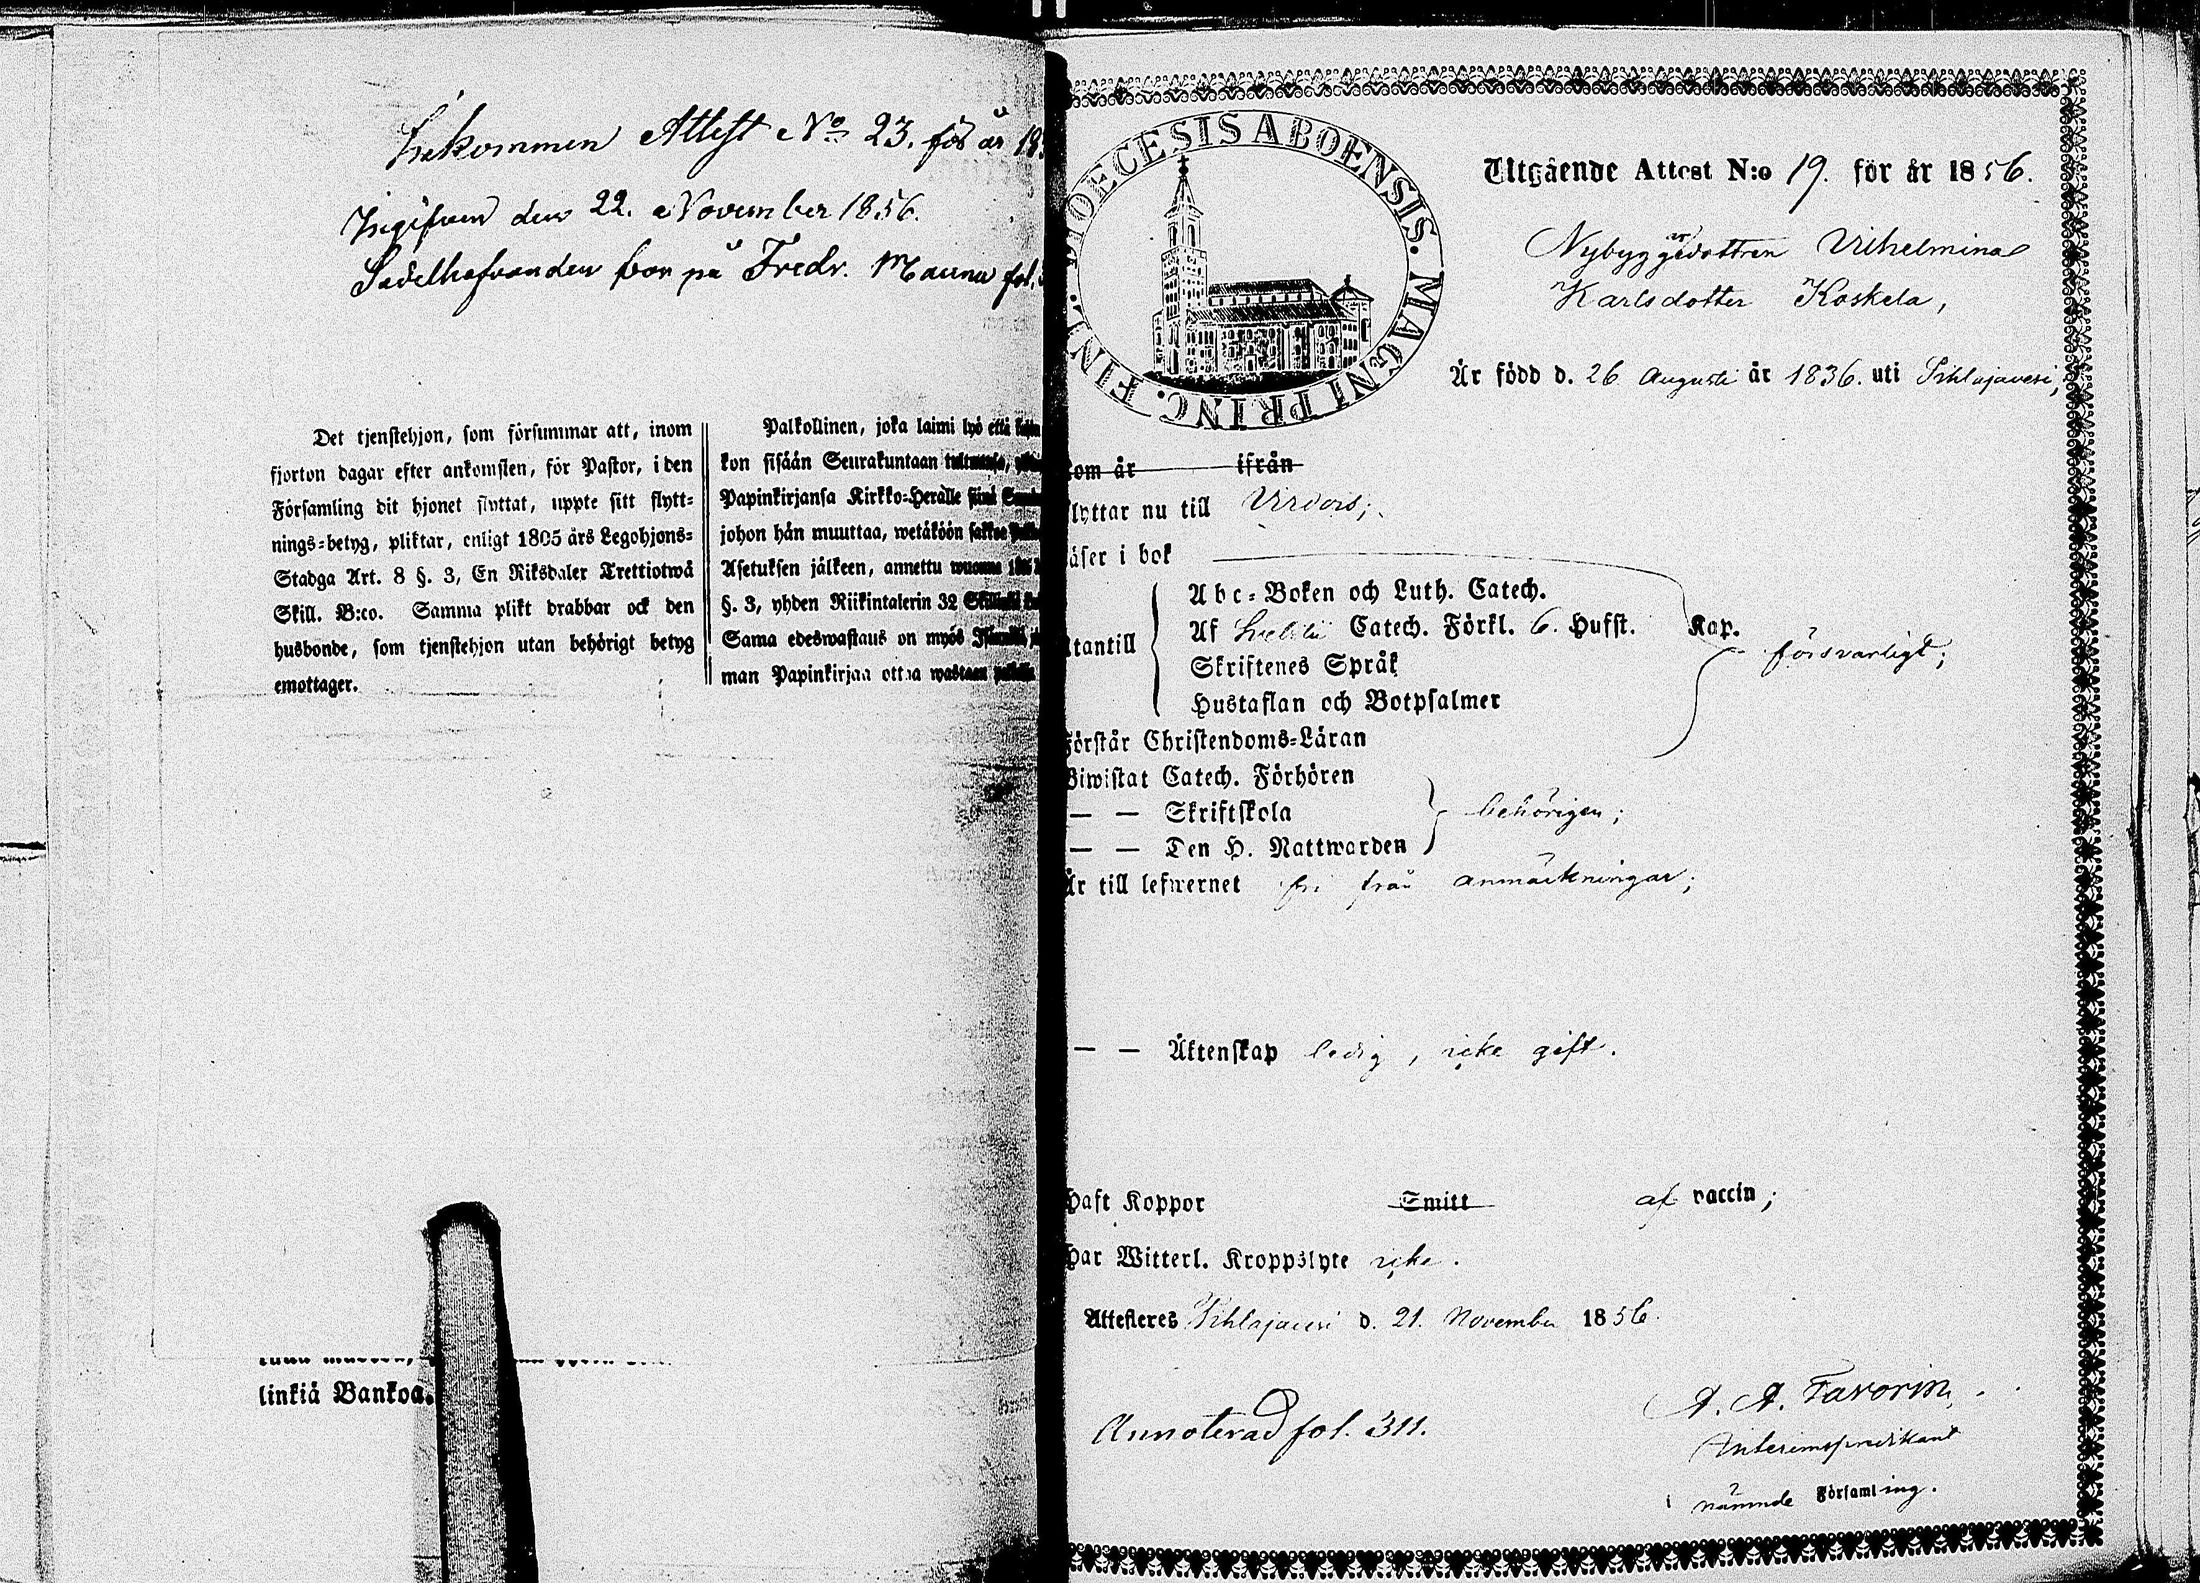 Inkommen Attest No 23. för år 18
Ingifven den 22. November 1856.
Sedelhafvanden bor på Fredr. Mauna fol.
Det tjenstehjon, som försummar att, inom
fjorton dagar efter ankomsten, för Pastor, i den
Församling dit hjonet flyttat, uppte sitt flytt-
nings-betyg, pliktar, enligt 1805 års Legohjons-
Stadga Art. 8 §. 3, En Riksdaler Trettiotwå
Skill. B:co. Samma plikt drabbar ock den
husbonde, som tjenstehjon utan behörigt betyg
emottager.
Palkollinen, joka laimi lyö että
kon sisään Seurakuntaan
Papinkirjansa Kirkko-Heralle siinä
johon hän muuttaa, wetäköön sakkoa
Asetuksen jälkeen, annettu wuonna
§. 3, yhden Riikintalerin 32 Skillinki
Sama edeswastaus on myös
man Papinkirjaa ottaa wastaan
linkiä Bankoa.
DIOECESIS ABOENSIS. MAGNI PRINC. FINL.
Utgående Attest N:o 19. för år 1856.
Nybyggaredottren Vilhelmina
Karlsdotter Koskela,
Är född d. 26 Augusti år 1836. uti Ithlajavesi,
kom år ifrån
flyttar nu till Virdois;
läser i bok
Utantill
Abc-Boken och Luth. Catech.
Af Svebilii Catech. Förkl. 6. Hufst. Kap.
Skriftenes Språk
Hustaflan och Botpsalmer
försvarligt;
Förstår Christendoms-Läran
Biwistat Catech. Förhören
— — Skriftskola
— — Den H. Nattwarden
behörigen;
Är till lefwernet fri från anmärkningar;
— — Äktenskap ledig, icke gift.
Haft Koppor Smitt af vaccin;
Har Witterl. Kroppslyte icke.
Attesteres Ithlajavesi d. 21. November 1856.
A. A. Favorin,
Interimspredikant
i nämnde Församling.
Annoterad fol. 311.